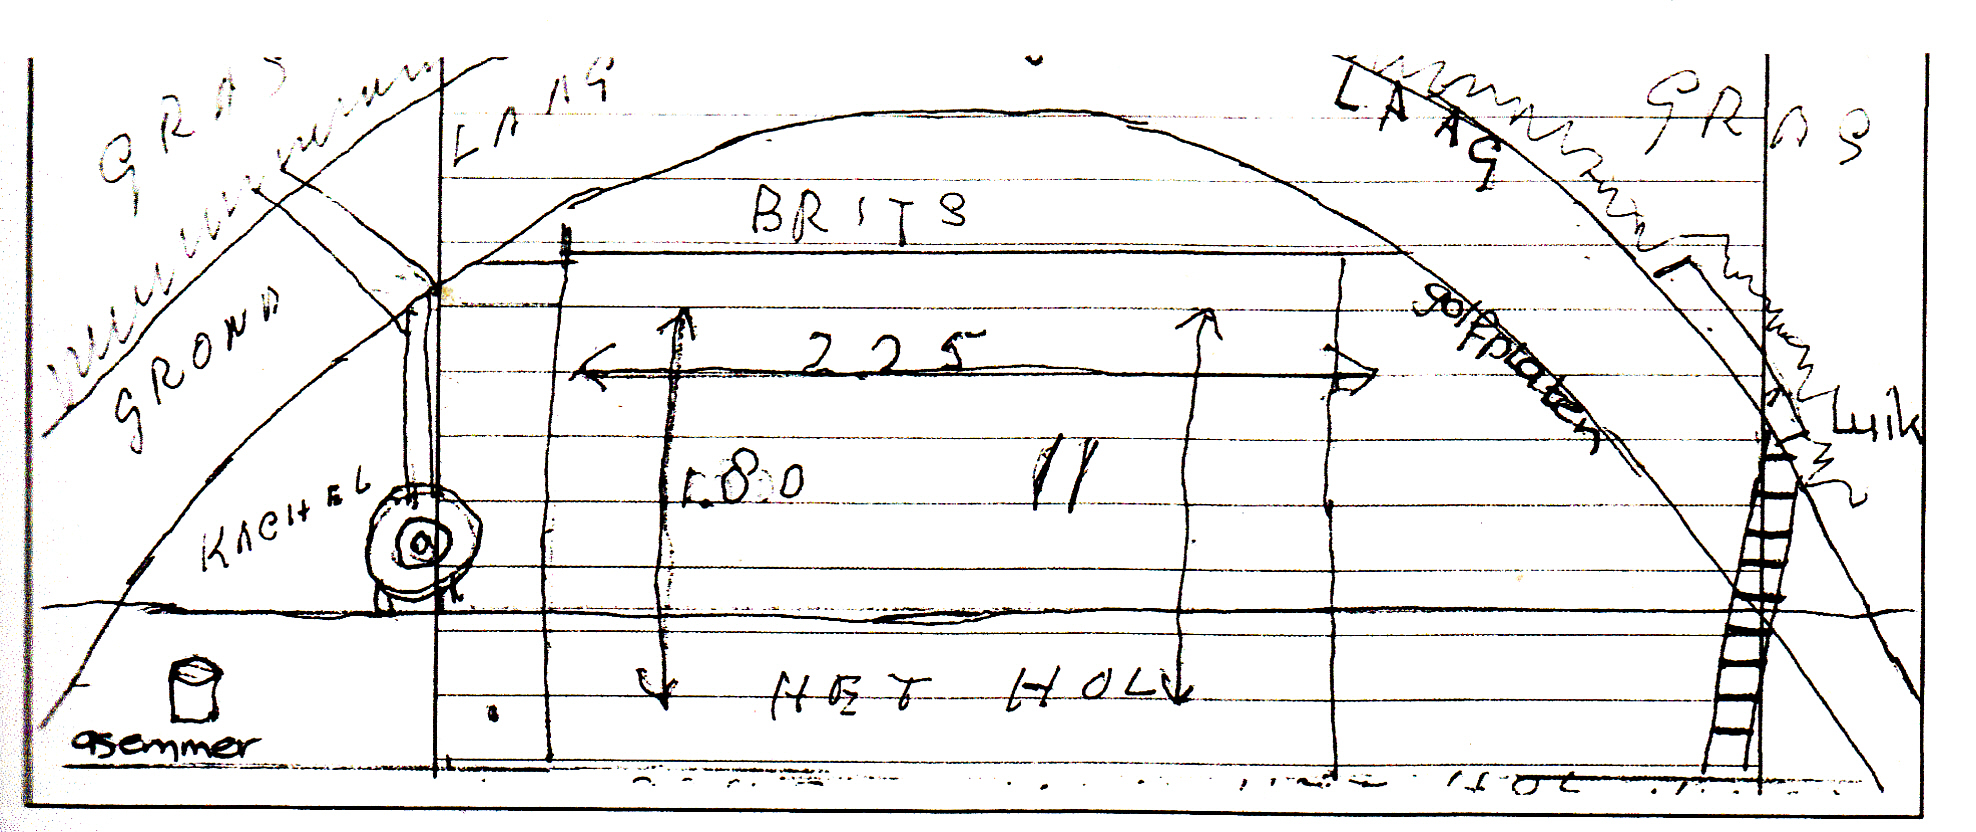 GRAS
LAAG
LAAG
GRAS
BRITS
GROND
golfplaten
225
Luik
KACHEL
1.80
HET HOL
asemmer
HOL